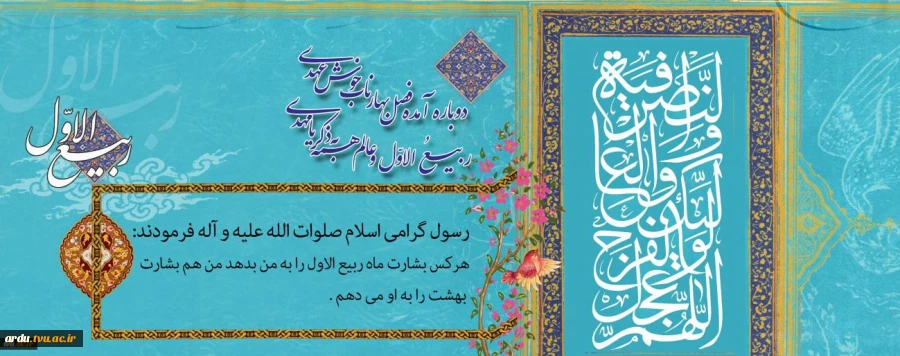 دوباره آمده فصل بهار ناب خوش عهدی
ربیعُ الاوّل و عالم همه به ذکر یا مهدی
ربیع الاوّل
رسول گرامی اسلام صلوات الله علیه و آله فرمودند:
هرکس بشارت ماه ربیع الاول را به من بدهد من هم بشارت
بهشت را به او می دهم .
اللهم عجل لولیک الفرج والعافیة والنصر
ربیع الاول
ardu.tvu.ac.ir